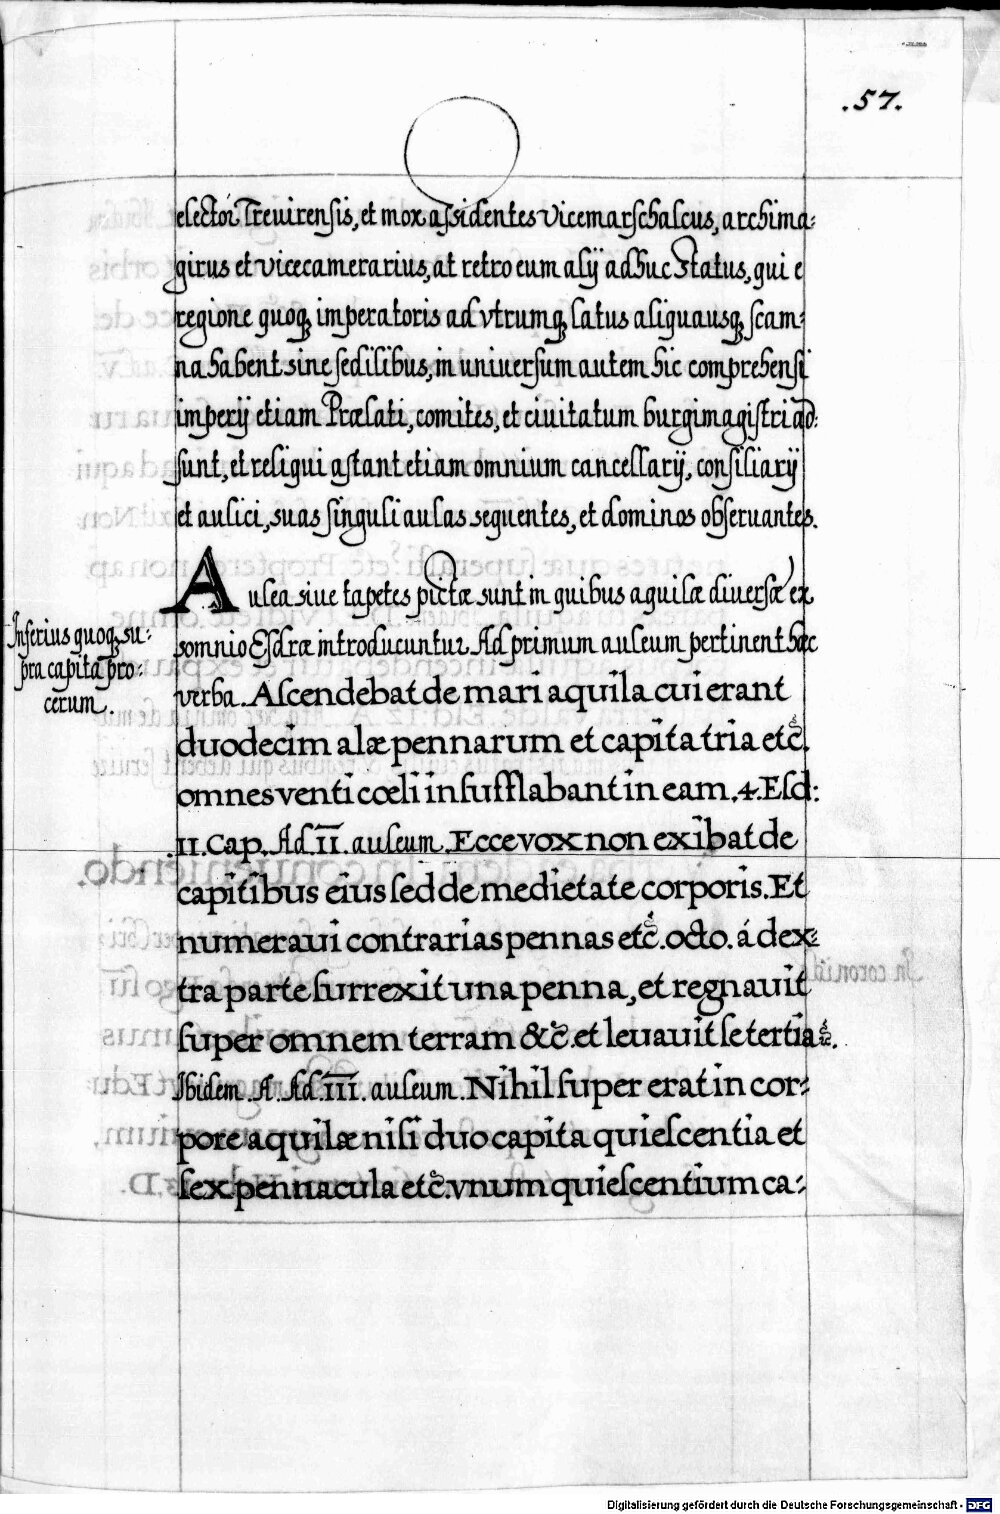 .57.
elector Treuirensis, et mox assidentes vicemarschalcus, archima-
girus et vicecamerarius, at retro eum alij adhuc Status, qui e
regione quoq; imperatoris ad vtrumq; latus aliquausq; scam-
na habent sine sedilibus, in uniuersum autem hic comprehensi
imperij etiam Prælati, comites, et ciuitatum burgimagistri ad-
sunt, et reliqui astant etiam omnium cancellarij, consiliarij
et aulici, suas singuli aulas sequentes, et dominos obseruantes.
Aulea siue tapetes pictæ sunt in quibus aquilæ diuersæ ex
Inferius quoq; su-
pra capita pro-
cerum.
somnio Esdræ introducuntur. Ad primum auleum pertinent hæc
verba. Ascendebat de mari aquila cui erant
duodecim alæ pennarum et capita tria etc̃.
omnes venti cœli insufflabant in eam. 4. Esd:
.11. Cap. Ad II. auleum. Ecce vox non exibat de
capitibus eius sed de medietate corporis. Et
numeraui contrarias pennas etc̃. octo. á dex-
tra parte surrexit una penna, et regnauit
super omnem terram &c̃. et leuauit se tertia &c̃.
Ibidem. A. Ad. III. auleum. Nihil super erat in cor-
pore aquilæ nisi duo capita quiescentia et
sex pennacula etc̃. vnum quiescentium ca-
Digitalisierung gefördert durch die Deutsche Forschungsgemeinschaft - DFG